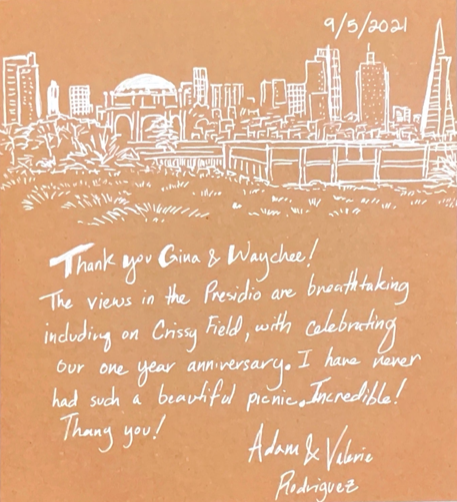 9/5/2021
Thank you Gina & Waychee!
The views in the Presidio are breathtaking
including on Crissy Field, with celebrating
our one year anniversary. I have never
had such a beautiful picnic. Incredible!
Thang you!
Adam & Valerie
Rodriguez